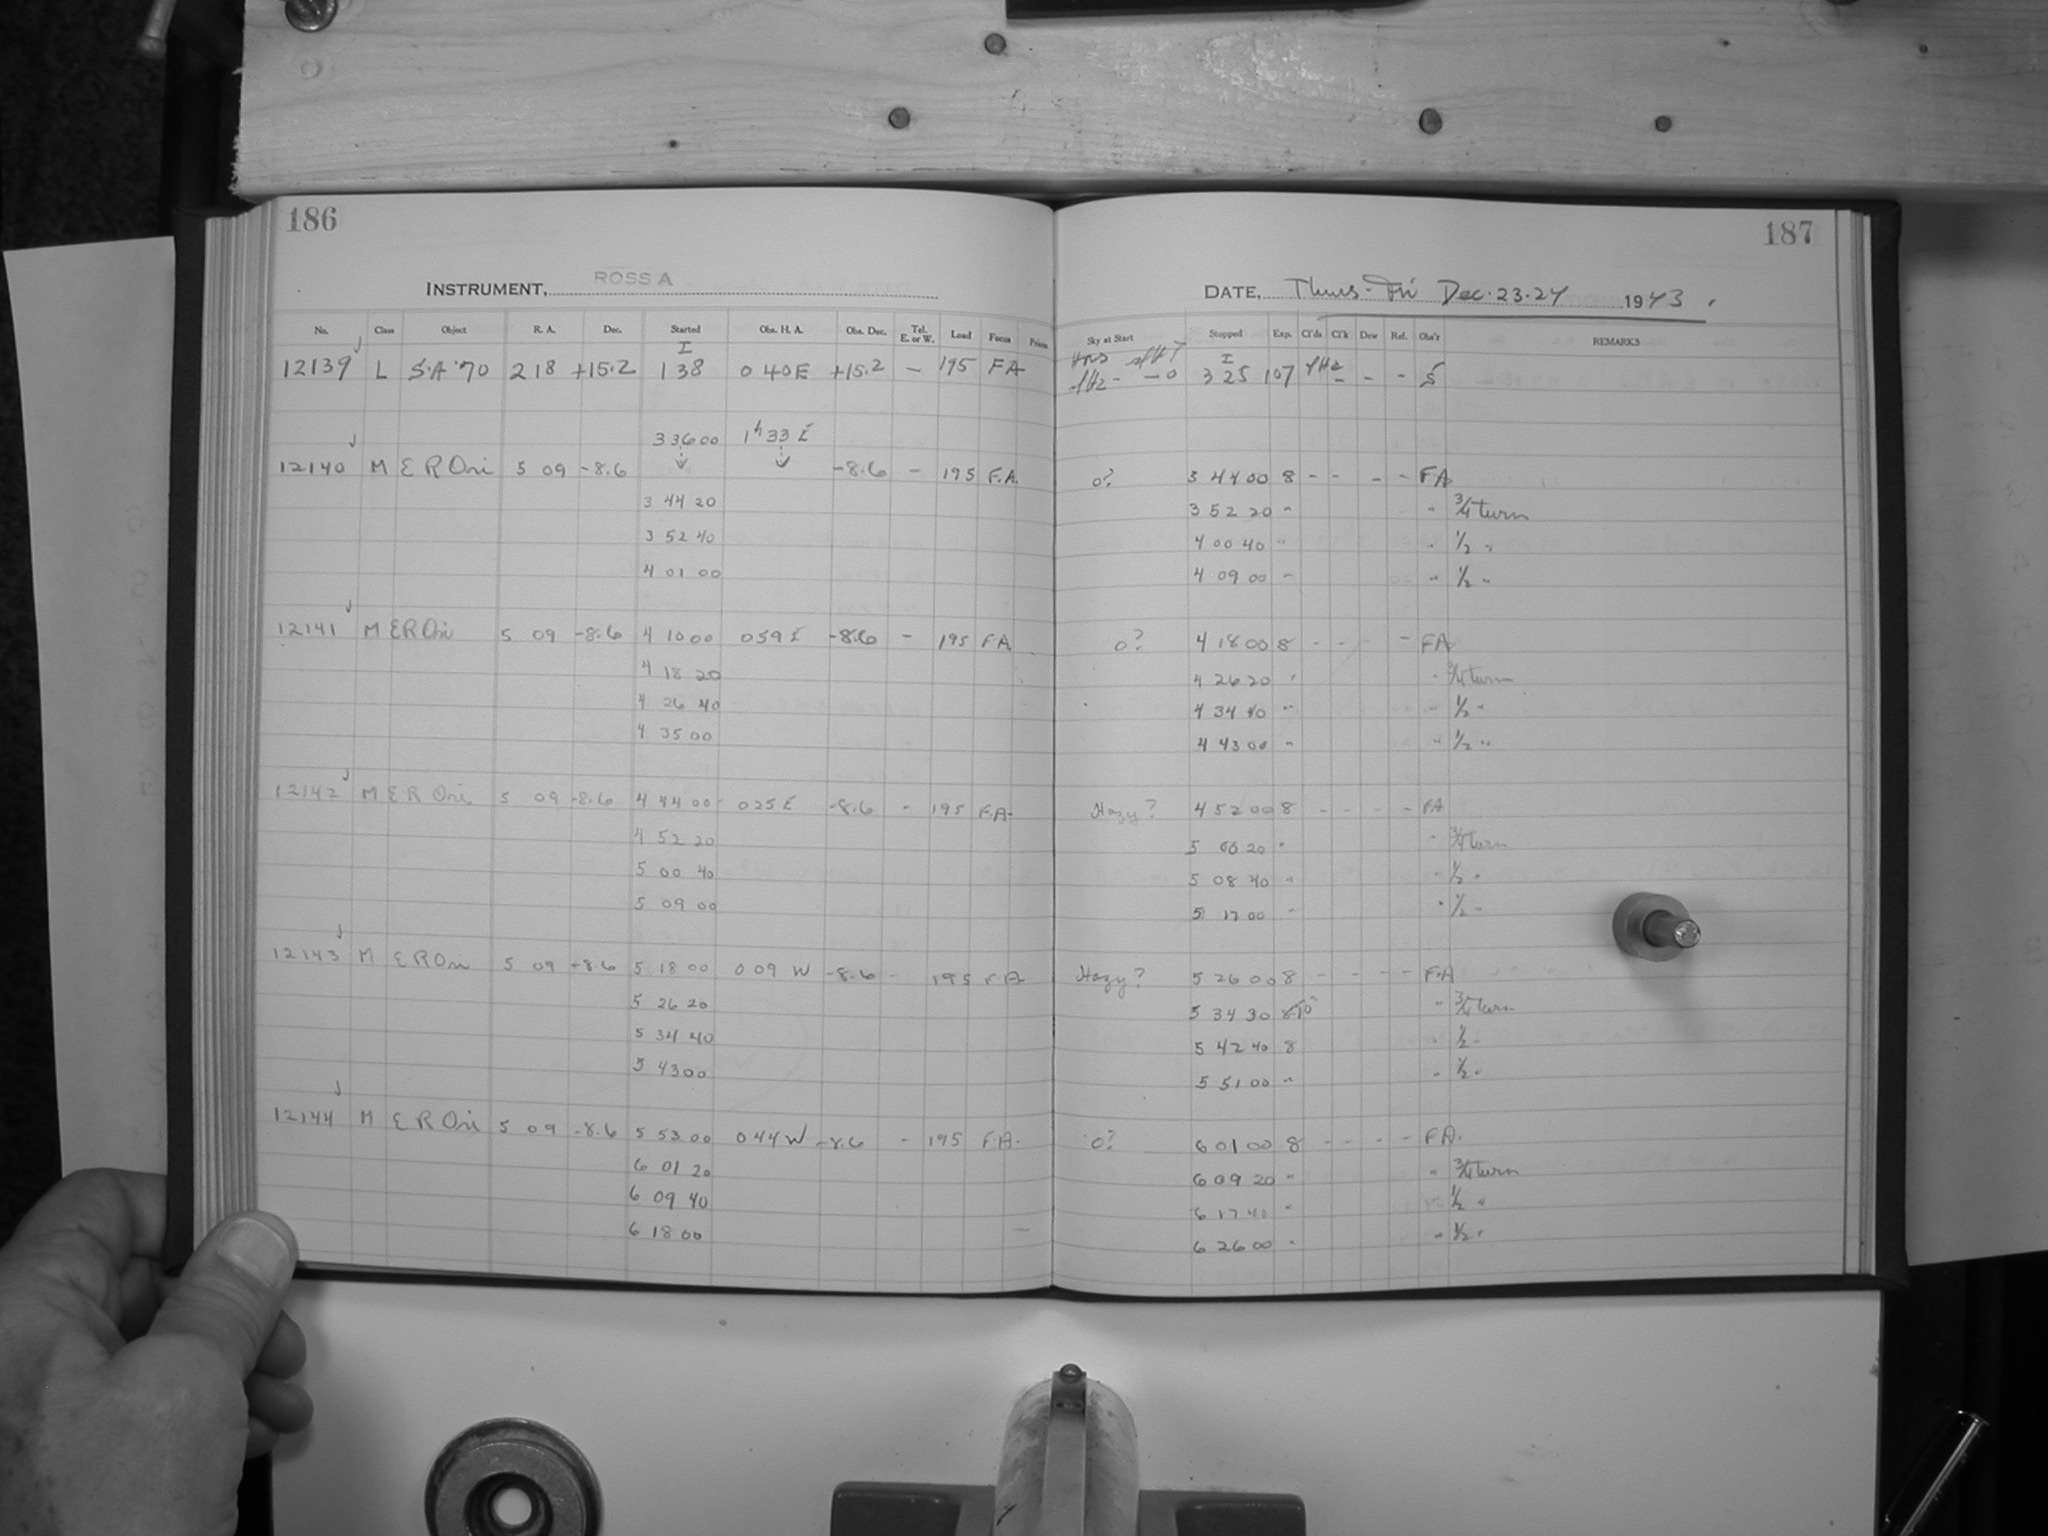 186
187
INSTRUMENT, ROSS A
DATE, Thurs-Fri Dec. 23-24 1943.
No. Class Object R. A. Dec. Started Obs. H. A. Obs. Dec. Tel. E. or W. Load Focus Prism Sky at Start Stopped Exp. Cl'ds Cl'k Dew Ref. Obs'r REMARKS
I I
12139 L S.A '70 2 18 +15.2 1 38 0 40 E +15.2 – 195 FA 3 25 107 – – – S
3 36 00 1h 33 E
12140 M E R Ori 5 09 -8.6 -8.6 – 195 F.A. 0? 3 44 00 8 – – – – FA
3 44 20 3 52 20 " " 3/4 turn
3 52 40 4 00 40 " " 1/2 "
4 01 00 4 09 00 " " 1/2 "
12141 M E R Ori 5 09 -8.6 4 10 00 0 59 E -8.6 – 195 FA. 0? 4 18 00 8 – – – – FA
4 18 20 4 26 20 " " 3/4 turn
4 26 40 4 34 40 " " 1/2 "
4 35 00 4 43 00 " " 1/2 "
12142 M E R Ori 5 09 -8.6 4 44 00 0 25 E -8.6 – 195 F.A. Hazy? 4 52 00 8 – – – – FA
4 52 20 5 00 20 " " 3/4 turn
5 00 40 5 08 40 " " 1/2 "
5 09 00 5 17 00 " " 1/2 "
12143 M E R Ori 5 09 -8.6 5 18 00 0 09 W -8.6 – 195 FA Hazy? 5 26 00 8 – – – – F.A
5 26 20 5 34 30 " 3/4 turn
5 34 40 5 42 40 8 " 1/2 "
5 43 00 5 51 00 " " 1/2 "
12144 M E R Ori 5 09 -8.6 5 53 00 0 44 W -8.6 – 195 F.A. 0? 6 01 00 8 – – – – FA.
6 01 20 6 09 20 " " 3/4 turn
6 09 40 6 17 40 " " 1/2 "
6 18 00 6 26 00 " " 1/2 "